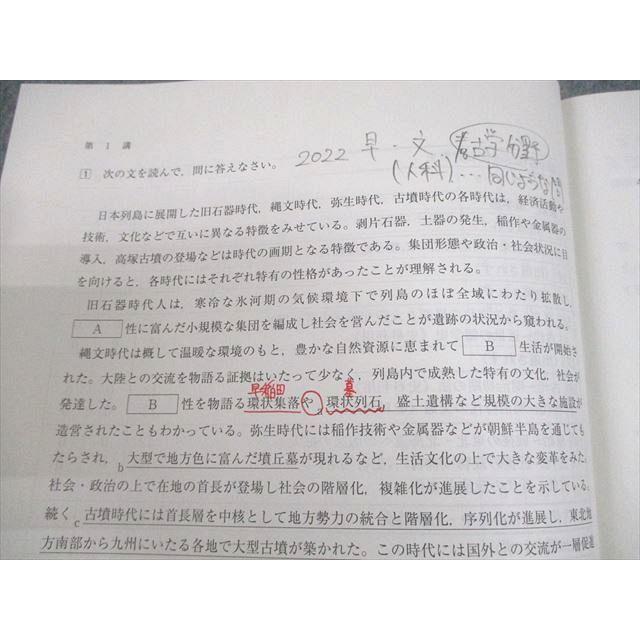 第 1 講
2022 早・文 考古学分野
(人科)…同じような問
1 次の文を読んで,問に答えなさい。
日本列島に展開した旧石器時代,縄文時代,弥生時代,古墳時代の各時代は,経済活動や
技術,文化などで互いに異なる特徴をみせている。剥片石器,土器の発生,稲作や金属器の
導入,高塚古墳の登場などは時代の画期となる特徴である。集団形態や政治・社会状況に目
を向けると,各時代にはそれぞれ特有の性格があったことが理解される。
旧石器時代人は,寒冷な氷河期の気候環境下で列島のほぼ全域にわたり拡散し,
A 性に富んだ小規模な集団を編成し社会を営んだことが遺跡の状況から窺われる。
縄文時代は概して温暖な環境のもと,豊かな自然資源に恵まれて B 生活が開始さ
れた。大陸との交流を物語る証拠はいたって少なく,列島内で成熟した特有の文化,社会が
早稲田 墓
発達した。 B 性を物語る環状集落や a環状列石,盛土遺構など規模の大きな施設が
造営されたこともわかっている。弥生時代には稲作技術や金属器などが朝鮮半島を通じても
たらされ, b大型で地方色に富んだ墳丘墓が現れるなど,生活文化の上で大きな変革をみた。
社会・政治の上で在地の首長が登場し社会の階層化,複雑化が進展したことを示している。
続く c古墳時代には首長層を中核として地方勢力の統合と階層化,序列化が進展し,東北地
方南部から九州にいたる各地で大型古墳が築かれた。この時代には国外との交流が一層促進